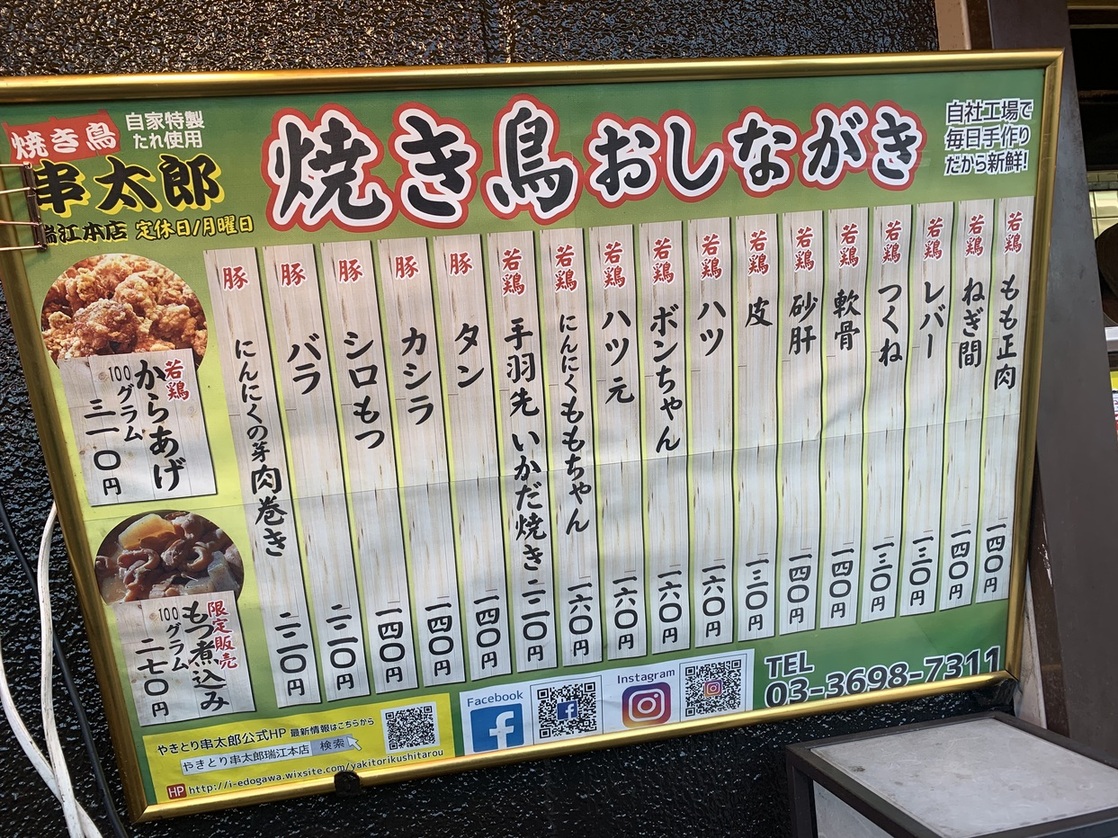 焼き鳥
串太郎
自家特製
たれ使用
瑞江本店 定休日/月曜日
焼き鳥おしながき
自社工場で
毎日手作り
だから新鮮!
若鶏 もも正肉 一四〇円
若鶏 ねぎ間 一四〇円
若鶏 レバー 一三〇円
若鶏 つくね 一三〇円
若鶏 軟骨 一四〇円
若鶏 砂肝 一四〇円
若鶏 皮 一三〇円
若鶏 ハツ 一六〇円
若鶏 ボンちゃん 一六〇円
若鶏 ハツ元 一六〇円
若鶏 にんにくももちゃん 一六〇円
若鶏 手羽先 いかだ焼き 二二〇円
豚 タン 一四〇円
豚 カシラ 一四〇円
豚 シロもつ 一四〇円
豚 バラ 二二〇円
豚 にんにくの芽肉巻き 二二〇円
若鶏 からあげ
100グラム
三一〇円
限定販売
もつ煮込み
100グラム
二七〇円
やきとり串太郎公式HP 最新情報はこちらから
やきとり串太郎瑞江本店 検索
HP http://i-edogawa.wixsite.com/yakitorikushitarou
Facebook
Instagram
TEL
03-3698-7311